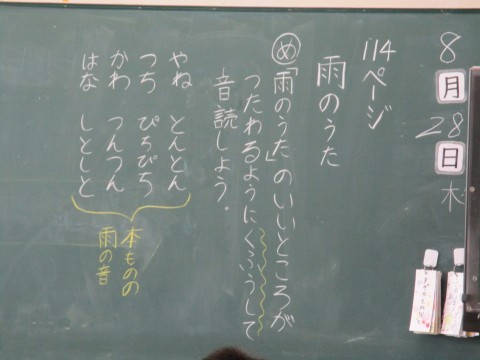 8月28日木
114ページ
雨のうた
め「雨のうた」のいいところが
つたわるようにくふうして
音読しよう。
やね とんとん
つち ぴちぴち
かわ つんつん
はな しとしと
本ものの
雨の音